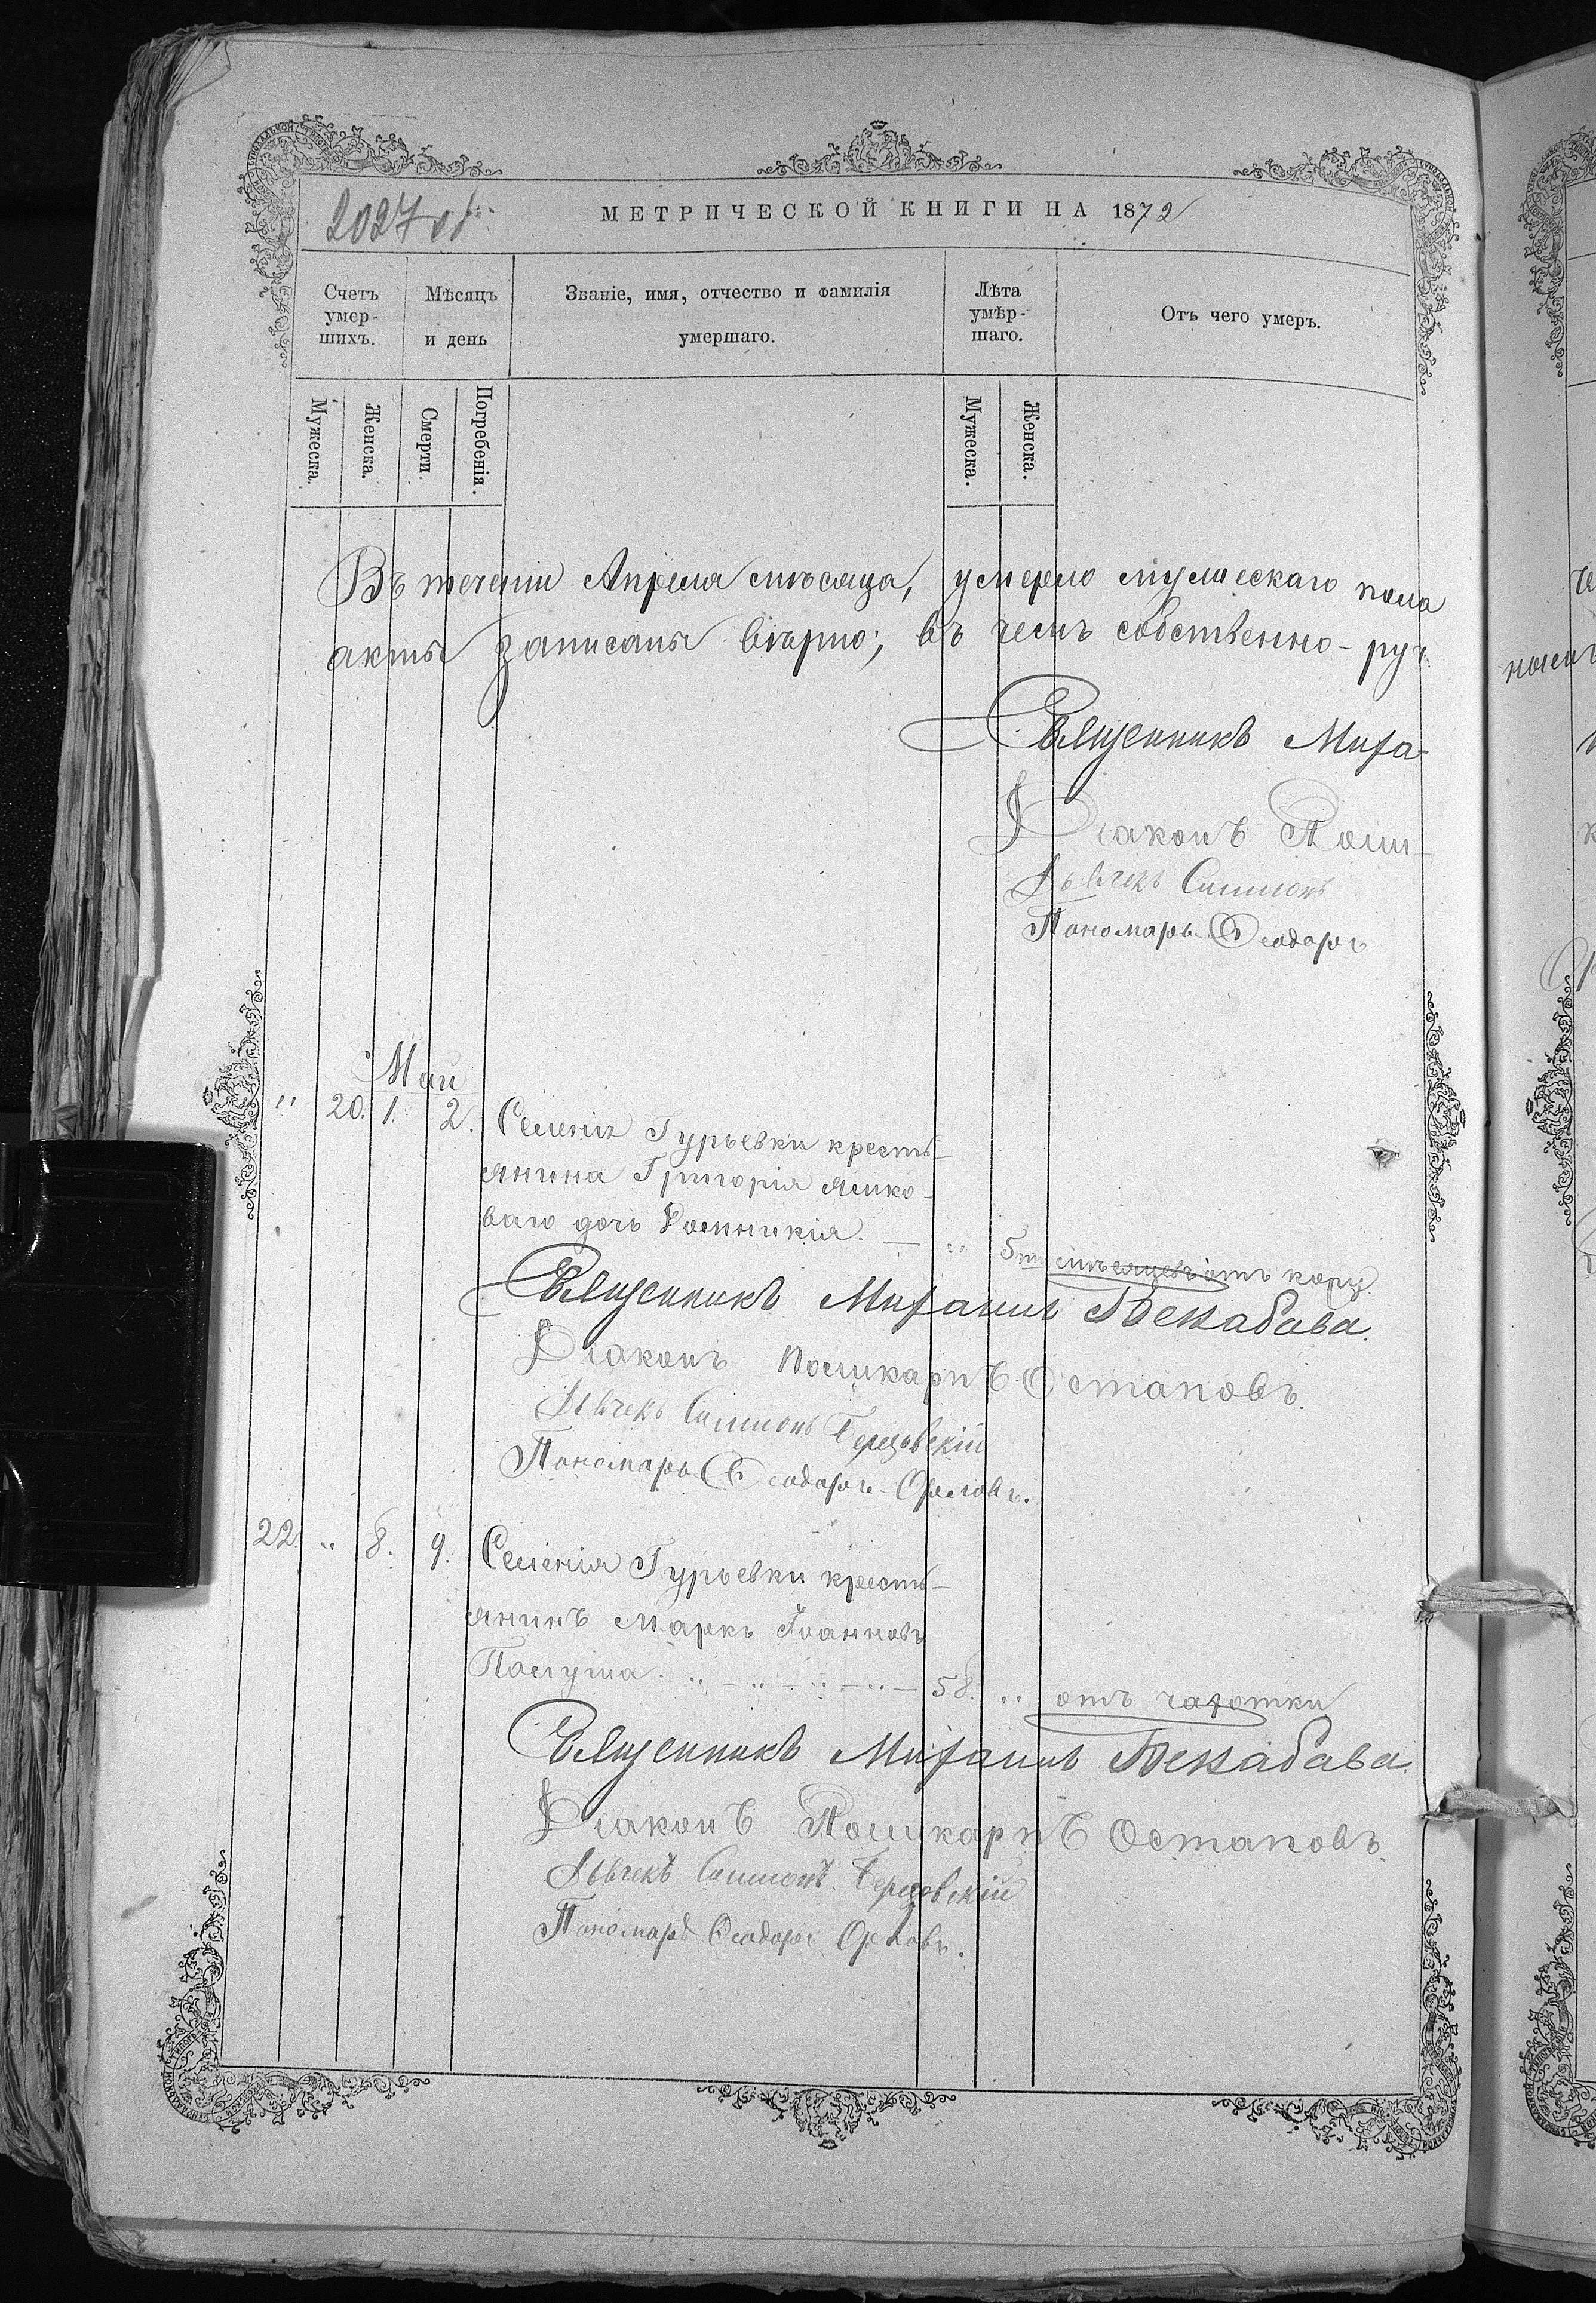 2027 об.
МЕТРИЧЕСКОЙ КНИГИ НА 1872
Счетъ умер- шихъ.
Мѣсяцъ и день
Званіе, имя, отчество и фамилія умершаго.
Лѣта умѣр- шаго.
Отъ чего умеръ.
Мужеска.
Женска.
Смерти.
Погребенія.
Мужеска.
Женска.
Въ теченіи Апреля мѣсяца, умерло мужескаго пола
акты записаны вѣрно; въ чемъ собственно-руч
Священникъ Миха-
Діаконъ Поли-
Дьячекъ Симеонъ
Пономарь Ѳеодоръ
Май
" 20. 1. 2. Селенія Гурьевки кресть-
янина Григорія
ваго дочь Домникія. — " 5ти мѣсяцевъ отъ кору
Священникъ Михаилъ
Діаконъ Поликарпъ Остаповъ.
Дьячекъ Симеонъ
Пономарь Ѳеодоръ Орловъ.
22. " 8. 9. Селенія Гурьевки кресть-
янинъ Маркъ Іоанновъ
58. " отъ чахотки
Священникъ Михаилъ
Діаконъ Поликарпъ Остаповъ.
Дьячекъ Симеонъ
Пономарь Ѳеодоръ Орловъ.